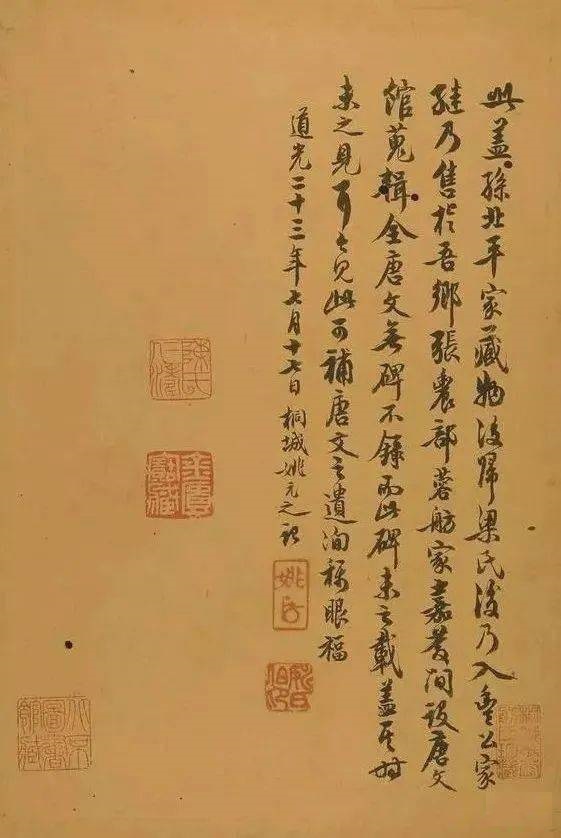 此蓋孫北平家藏物後歸梁氏後乃入豐公家
繼乃售於吾鄉張農部蓉舫家嘉慶間設唐文
館蒐輯全唐文無碑不錄而此碑未之載蓋其時
未之見耳見此可補唐文之遺洵稱眼福
道光二十三年七月十七日桐城姚元之記
姚氏
陳氏仁濤
金匱寶藏